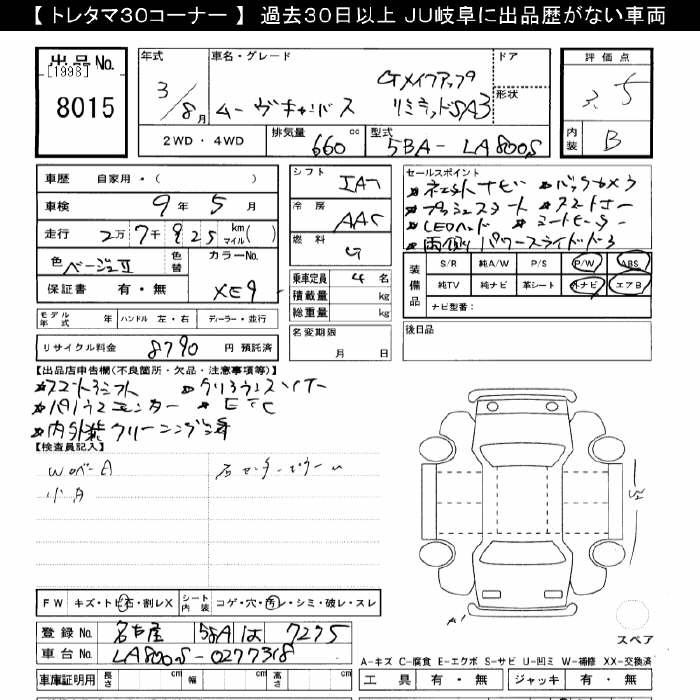 【 トレタマ30コーナー 】 過去30日以上 JU岐阜に出品歴がない車両
出品 No.
[1998]
8015
年式
3/8月
車名・グレード
ムーヴキャンバス
Gメイクアップ
リミテッドSA3
ドア
形状
評価点
3.5
内装 B
2WD・4WD
排気量 660 cc
型式 5BA- LA800S
車歴 自家用・( )
車検 9年 5月
走行 2万7千925 km マイル( )
色 ベージュII
色替
カラーNo.
XE9
保証書 有・無
シフト IAT
冷房 AAC
燃料 G
乗車定員 4 名
積載量 kg
総重量 kg
セールスポイント
バックカメラ
プッシュスタート スマートキー
LEDヘッド シートヒーター
両側パワースライドドア
装備品
S/R 純A/W P/S P/W ABS
純TV 純ナビ 革シート 外ナビ エアB
ナビ型番:
モデル年式 年
ハンドル 左・右
ディーラー・並行
名変期限
月 日
後日品
リサイクル料金 8790 円 預託済
【出品店申告欄(不良箇所・欠品・注意事項等)】
クリアランスソナー
パノラマモニター ETC
内外装クリーニング済
【検査員記入】
WロベーA
小キ
FW キズ・トビ石・割レX
シート内装 コゲ・穴・汚レ・シミ・破レ・スレ
登録 No. 名古屋 58A は 7275
車台 No. LA800S-0277318
車庫証明用 長さ cm 幅 cm 高さ cm
A1
W2
スペア
A-キズ C-腐食 E-エクボ S-サビ U-凹ミ W-補修 XX-交換済
工具 有・無 ジャッキ 有・無